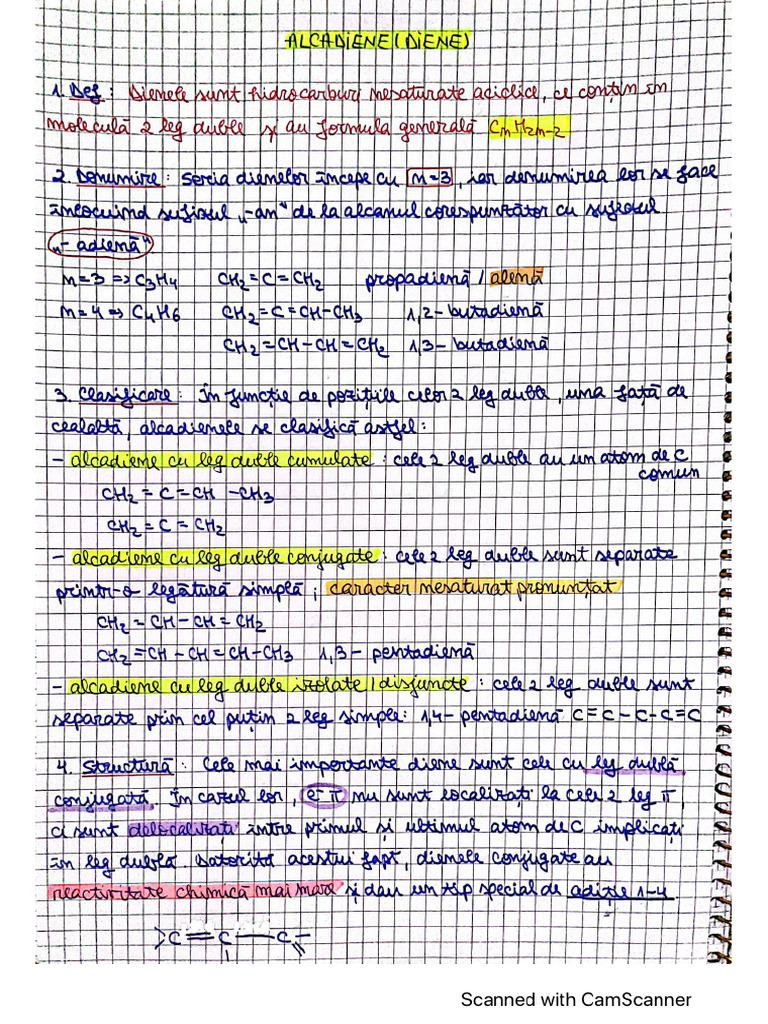 ALCADIENE (DIENE)
1. Def: Dienele sunt hidrocarburi nesaturate aciclice, ce conțin în
moleculă 2 leg duble și au formula generală CnH2n-2
2. Denumire: Seria dienelor începe cu n=3, iar denumirea lor se face
înlocuind sufixul „-an" de la alcanul corespunzător cu sufixul
„-adienă"
n=3 => C3H4 CH2=C=CH2 propadienă / alenă
n=4 => C4H6 CH2=C=CH-CH3 1,2-butadienă
CH2=CH-CH=CH2 1,3-butadienă
3. Clasificare: În funcție de pozițiile celor 2 leg duble, una față de
cealaltă, alcadienele se clasifică astfel:
- alcadiene cu leg duble cumulate: cele 2 leg duble au un atom de C
comun
CH2=C=CH-CH3
CH2=C=CH2
- alcadiene cu leg duble conjugate: cele 2 leg duble sunt separate
printr-o legătură simplă; caracter nesaturat pronunțat
CH2=CH-CH=CH2
CH2=CH-CH=CH-CH3 1,3-pentadienă
- alcadiene cu leg duble izolate / disjuncte: cele 2 leg duble sunt
separate prin cel puțin 2 leg simple: 1,4-pentadienă C=C-C-C=C
4. Structură: Cele mai importante diene sunt cele cu leg dublă
conjugată. În cazul lor, e⁻ π nu sunt localizați la cele 2 leg π,
ci sunt delocalizați între primul și ultimul atom de C implicați
în leg dublă. Datorită acestui fapt, dienele conjugate au
reactivitate chimică mai mare și dau un tip special de adiție 1-4.
>C=C-C=
Scanned with CamScanner